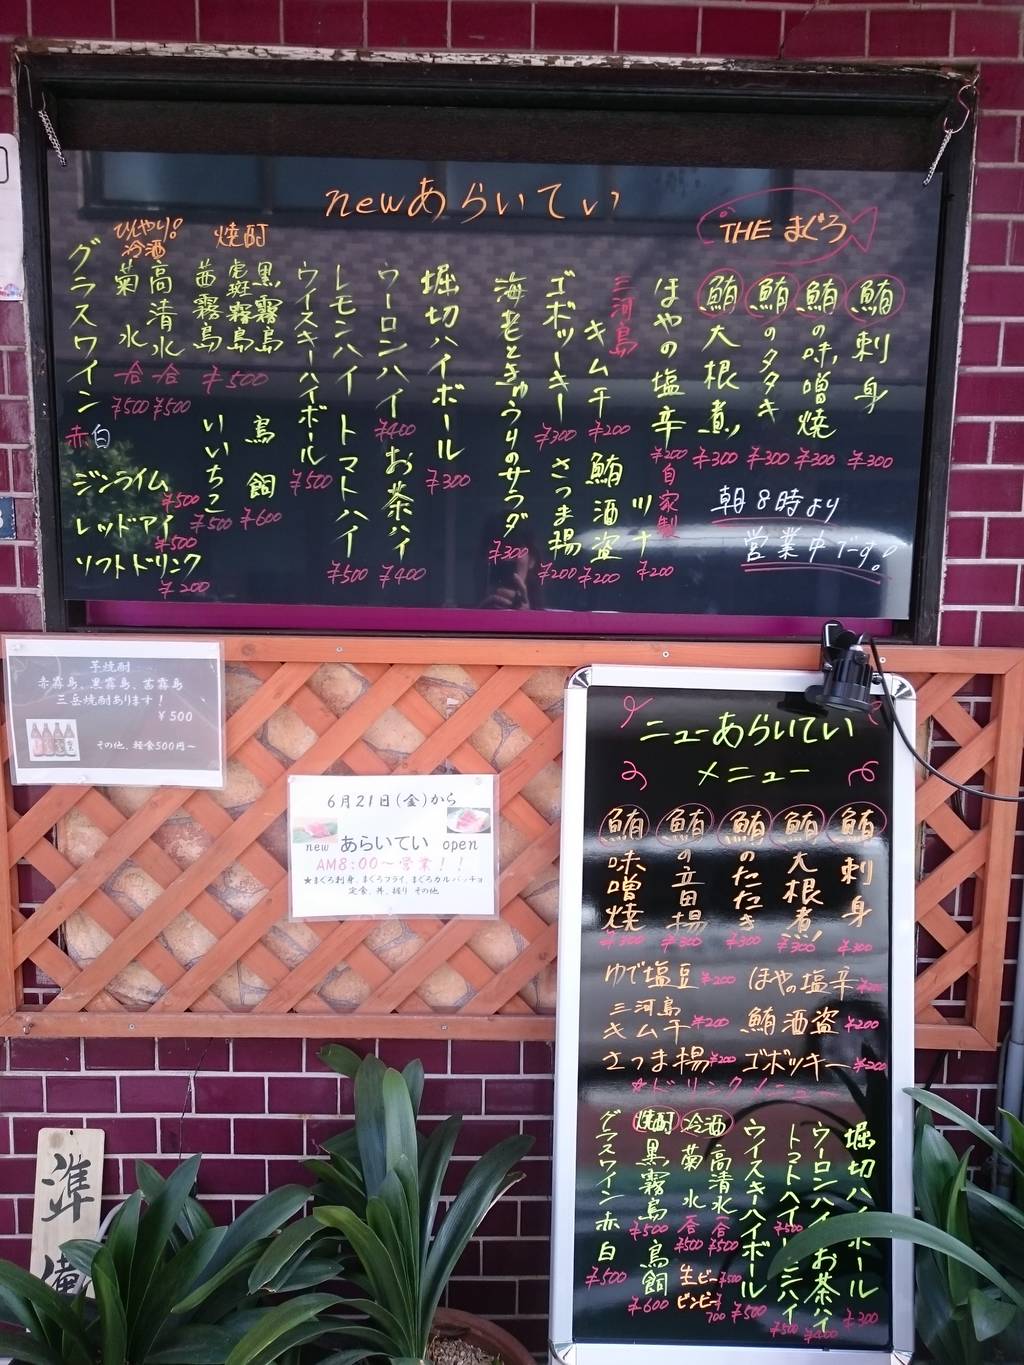 newあらいてい
THE まぐろ
鮪刺身 ¥300
鮪の味噌焼 ¥300
鮪のタタキ ¥300
鮪大根煮 ¥300
朝8時より
営業中です!
ほやの塩辛 ¥200
自家製ツナ ¥200
三河島キムチ ¥200
鮪酒盗 ¥200
ゴボッキー ¥300
さつま揚 ¥200
海老ときゅうりのサラダ ¥300
堀切ハイボール ¥300
ウーロンハイ ¥400
お茶ハイ ¥400
レモンハイ
トマトハイ ¥500
ウイスキーハイボール ¥500
焼酎
黒霧島
虎斑霧島
茜霧島
¥500
鳥飼 ¥600
いいちこ ¥500
ひんやり!
冷酒
高清水 一合 ¥500
菊水 一合 ¥500
グラスワイン
赤 白
¥500
ジンライム
レッドアイ ¥500
ソフトドリンク ¥200
芋焼酎
赤霧島、黒霧島、茜霧島
三岳焼酎あります!
¥500
その他、軽食500円~
6月21日(金)から
new あらいてい open
AM8:00~営業!!
★まぐろ刺身、まぐろフライ、まぐろカルパッチョ
定食、丼、握り その他
ニューあらいてい
メニュー
鮪刺身 ¥300
鮪大根煮 ¥300
鮪のたたき ¥300
鮪の立田揚 ¥300
鮪味噌焼 ¥300
ゆで塩豆 ¥200 ほやの塩辛
三河島
キムチ ¥200 鮪酒盗 ¥200
さつま揚 ¥200 ゴボッキー ¥200
ドリンクメニュー
堀切ハイボール ¥300
ウーロンハイ
お茶ハイ ¥400
トマトハイ ¥500
ハイ ¥500
ウイスキーハイボール ¥500
冷酒
高清水 一合 ¥500
菊水 一合 ¥500
生ビー ¥500
ビンビー 700
焼酎
黒霧島 ¥500
鳥飼 ¥600
グラスワイン 赤 白 ¥500
準備